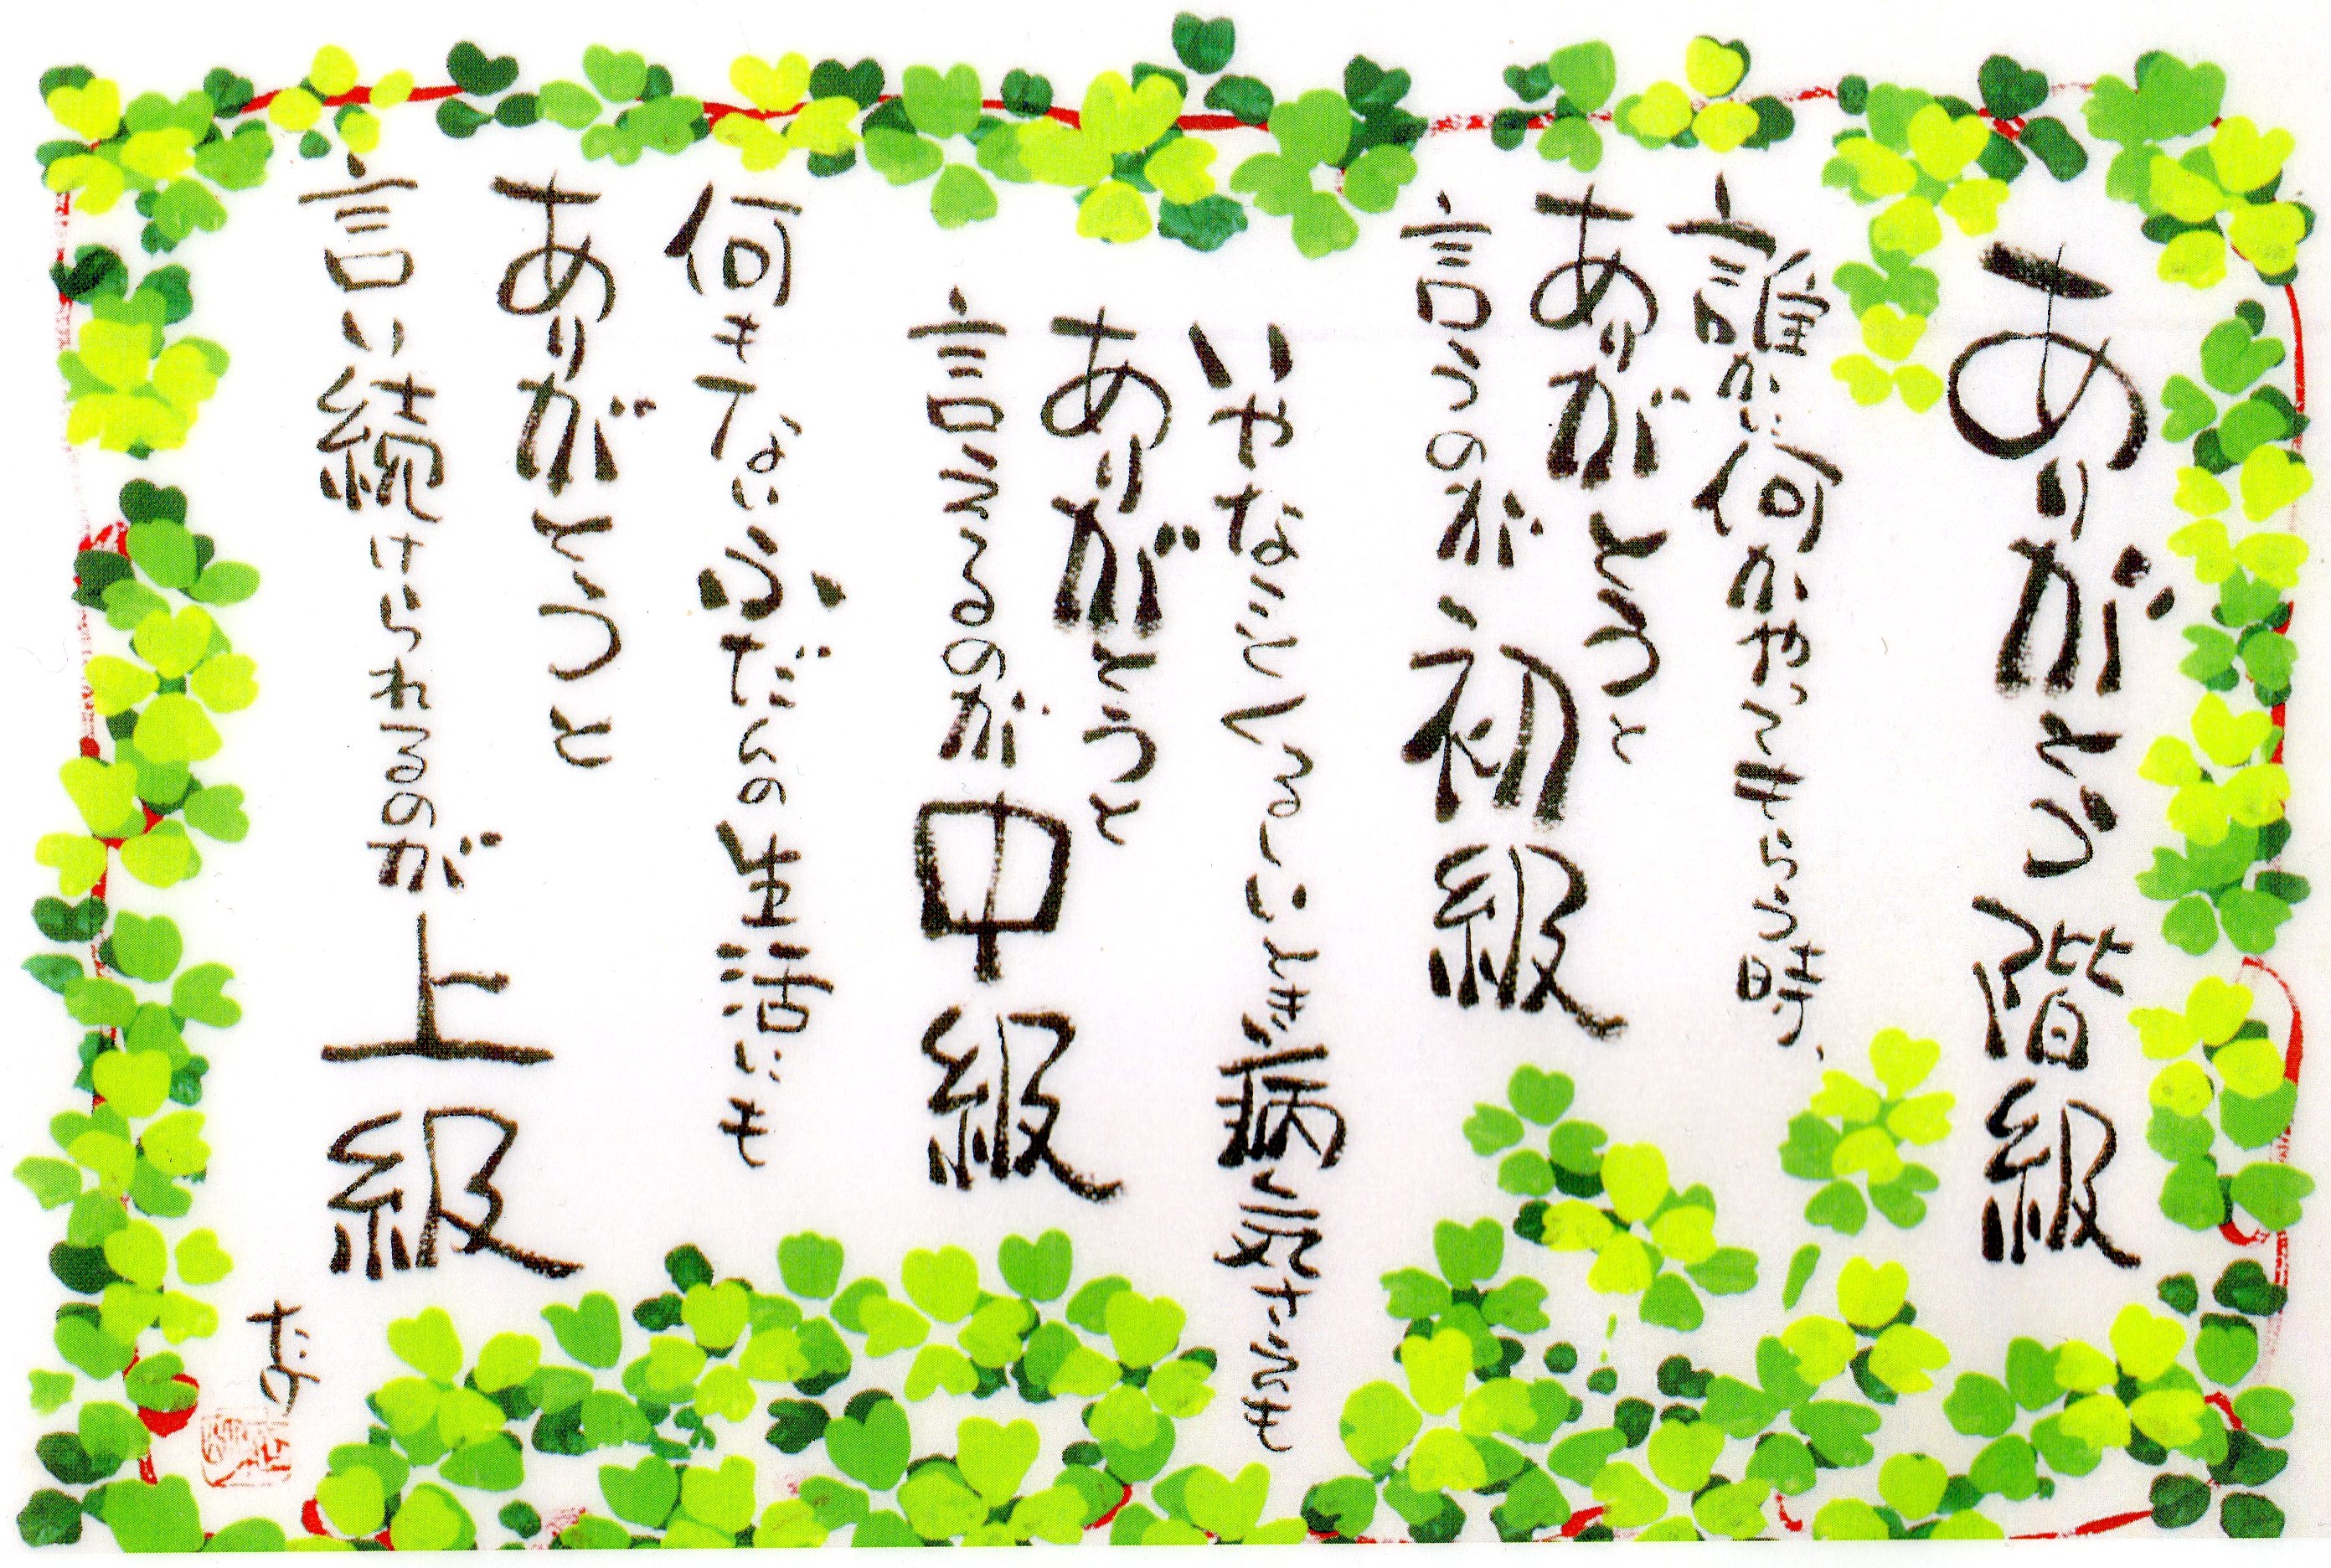 ありがとう階級
誰かに何かやってもらう時、
ありがとうと
言うのが初級
いやなことくるしいとき病気さえも
ありがとうと
言えるのが中級
何もないふだんの生活にも
ありがとうと
言い続けられるのが上級
たけ